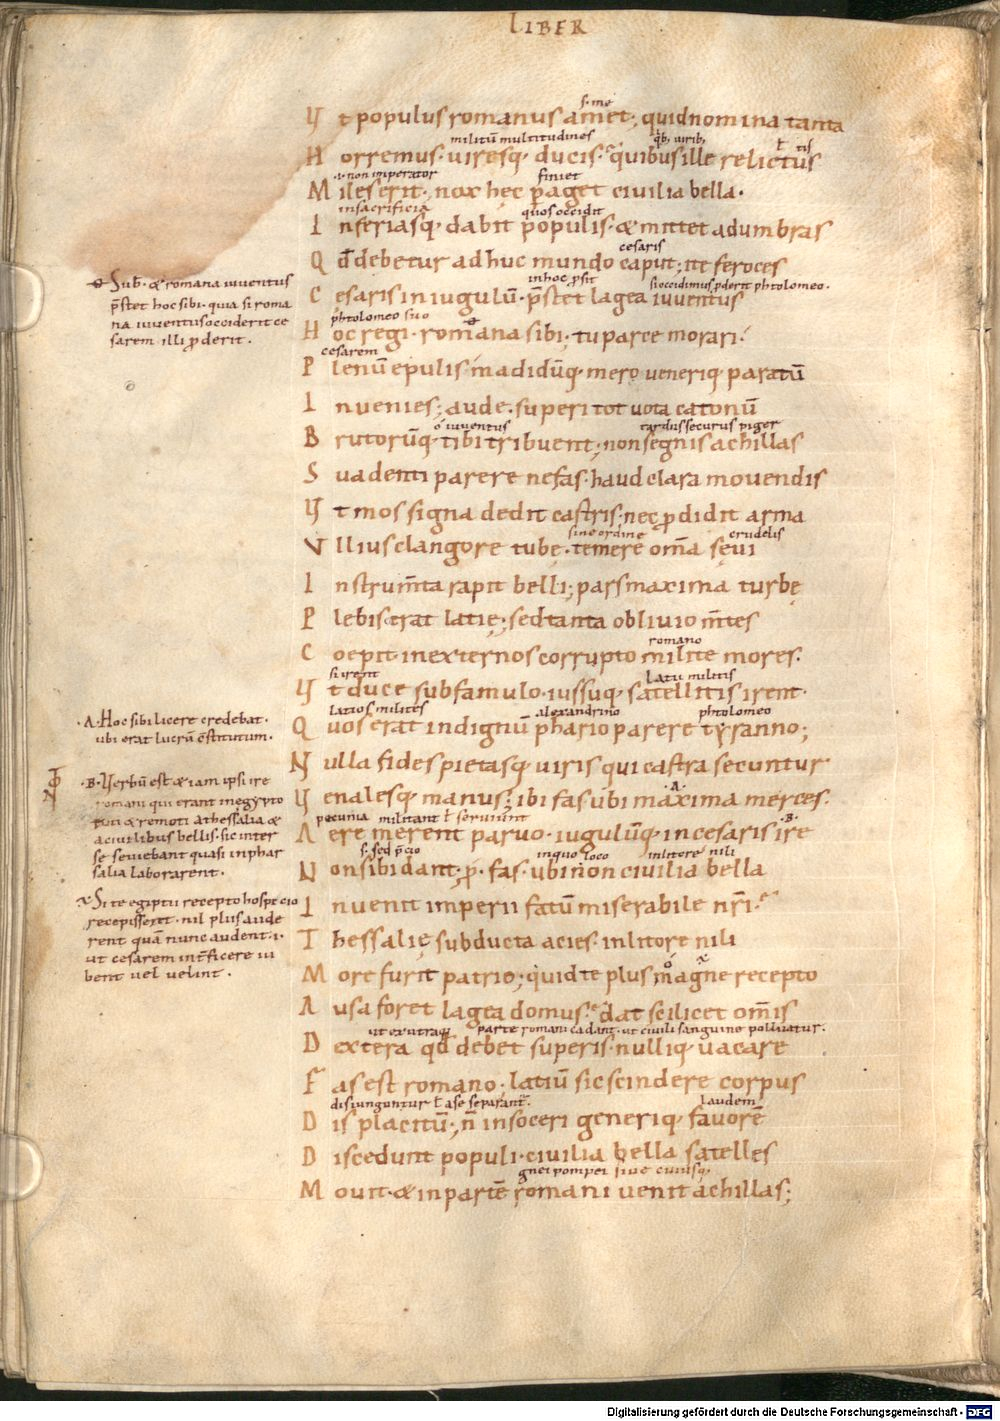 LIBER
Vt populus romanus amet; quid nomina tanta
militũ multitudines
Horremus· uiresq; ducis· quibus ille relictus
·i· non imperator finiet
Miles erit; nox hęc p̄aget ciuilia bella·
in sacrificia quos occidit
Inferiasq; dabit populis· & mittet ad umbras
cesaris
Qđ debetur adhuc mundo caput; ite feroces
in hoc ꝓsit si occidimus ꝓderit phtolomeo·
Cesaris in iugulũ· p̄stet lagea iuuentus
phtolomeo suo
Hoc regi· romana sibi; tu parce morari·
cesarem
Plenũ epulis madidũq; mero ueneriq; paratũ
Inuenies; aude· superi tot uota catonũ
o iuuentus tardus securus piger
Brutorũq; tibi tribuent; non segnis achillas
Suadenti parere nefas· haud clara mouendis
Vt mos signa dedit castris· nec ꝓdidit arma
sine ordine crudelis
Vllius clangore tubę· temere om̄a sęui
Instrum̄ta rapit belli; pars maxima turbę
Plebis erat latię; sed tanta obliuio m̄tes
romano
Coepit· in externos corrupto milite mores·
si irent latii militis
Vt duce sub famulo· iussuq; satellitis irent·
latios milites alexandrino phtolomeo
Quos erat indignũ phario parere tyranno;
Nulla fides pietasq; uiris qui castra secuntur
Venalesq; manus; ibi fas ubi maxima merces·
pecunia militant ł seruiunt
Aere merent paruo· iugulũq; in cesaris ire
s· sed p̄cio in quo loco in litore nili
Non sibi dant· ꝓ· fas· ubi non ciuilia bella
Inuenit imperii fatũ miserabile nr̄i·
Thessalię subducta acies· in litore nili
More furit patrio; quid te plus magne recepto
Ausa foret lagea domus· dat scilicet om̄is
ut ex utraq; parte romani cadant· ut ciuili sanguine polluatur·
Dextera qđ debet superis· nulliq; uacare
Fas est romano; latiũ sic scindere corpus
disiunguntur ł a se separant̄· laudem
Dis placitũ; n̄ in soceri generiq; fauorē
Discedunt populi· ciuilia bella satelles
gnei pompei siue cuiusq;
Mouit· & in partē romani uenit achillas;
Sub· & romana iuuentus
p̄stet hoc sibi· quia si roma
na iuuentus occiderit ce
sarem illi ꝓderit·
·A· Hoc sibi licere credebat·
ubi erat lucrũ c̄stitutum·
·B· Verbũ est & iam ipsi ire
romani qui erant in egypto
& remoti a thessalia &
a ciuilibus bellis· sic inter
se seuiebant quasi in phar
salia laborarent·
Si te egiptu recepto hospicio
recepisset· nil plus aude
rent quã nunc audent·i·
ut cesarem int̄ficere iu
bent uel uelint·
Digitalisierung gefördert durch die Deutsche Forschungsgemeinschaft - DFG